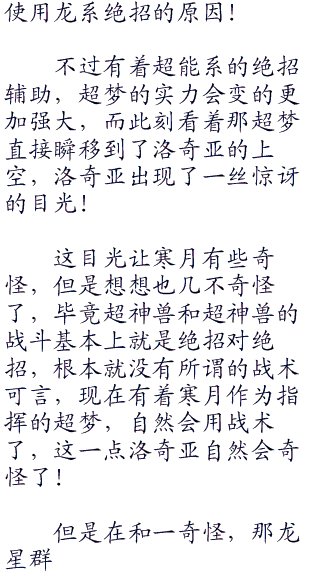 使用龙系绝招的原因！
　　不过有着超能系的绝招
辅助，超梦的实力会变的更
加强大，而此刻看着那超梦
直接瞬移到了洛奇亚的上
空，洛奇亚出现了一丝惊讶
的目光！
　　这目光让寒月有些奇
怪，但是想想也几不奇怪
了，毕竟超神兽和超神兽的
战斗基本上就是绝招对绝
招，根本就没有所谓的战术
可言，现在有着寒月作为指
挥的超梦，自然会用战术
了，这一点洛奇亚自然会奇
怪了！
　　但是在和一奇怪，那龙
星群